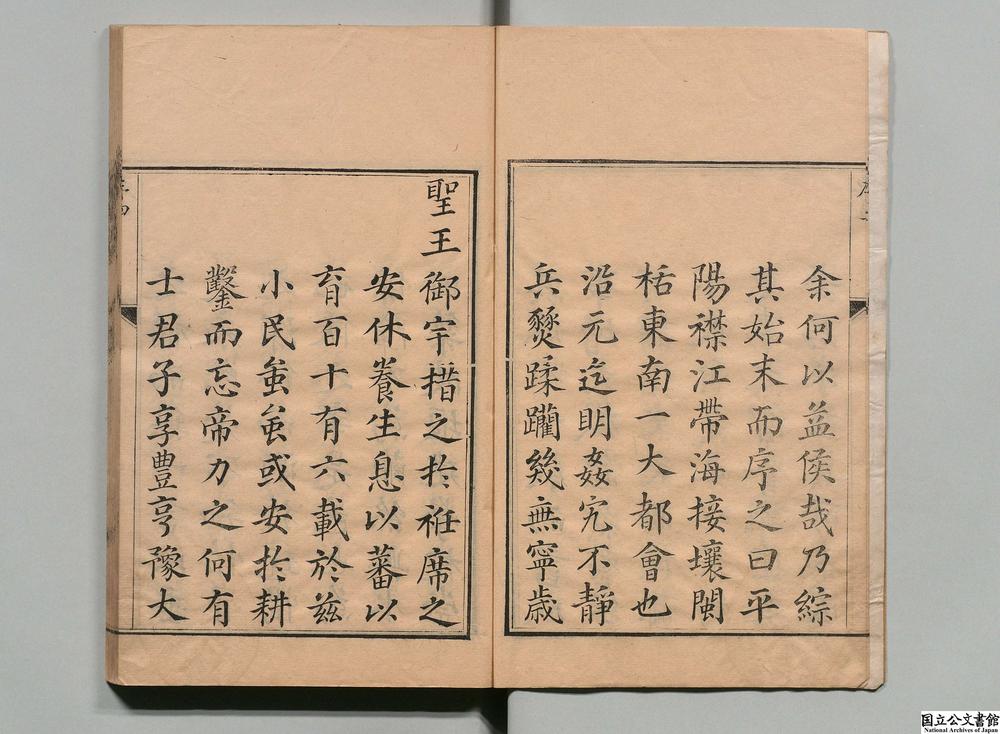 余何以益侯哉乃綜
其始末而序之曰平
陽襟江帶海接壤閩
栝東南一大都會也
沿元迄明姦宄不靜
兵燹蹂躪幾無寧歳
聖王御宇措之扵袵席之
安休養生息以蕃以
育百十有六載於兹
小民蚩蚩或安扵耕
鑿而忘帝力之何有
士君子享豊亨豫大
序四
国立公文書館
National Archives of Japan